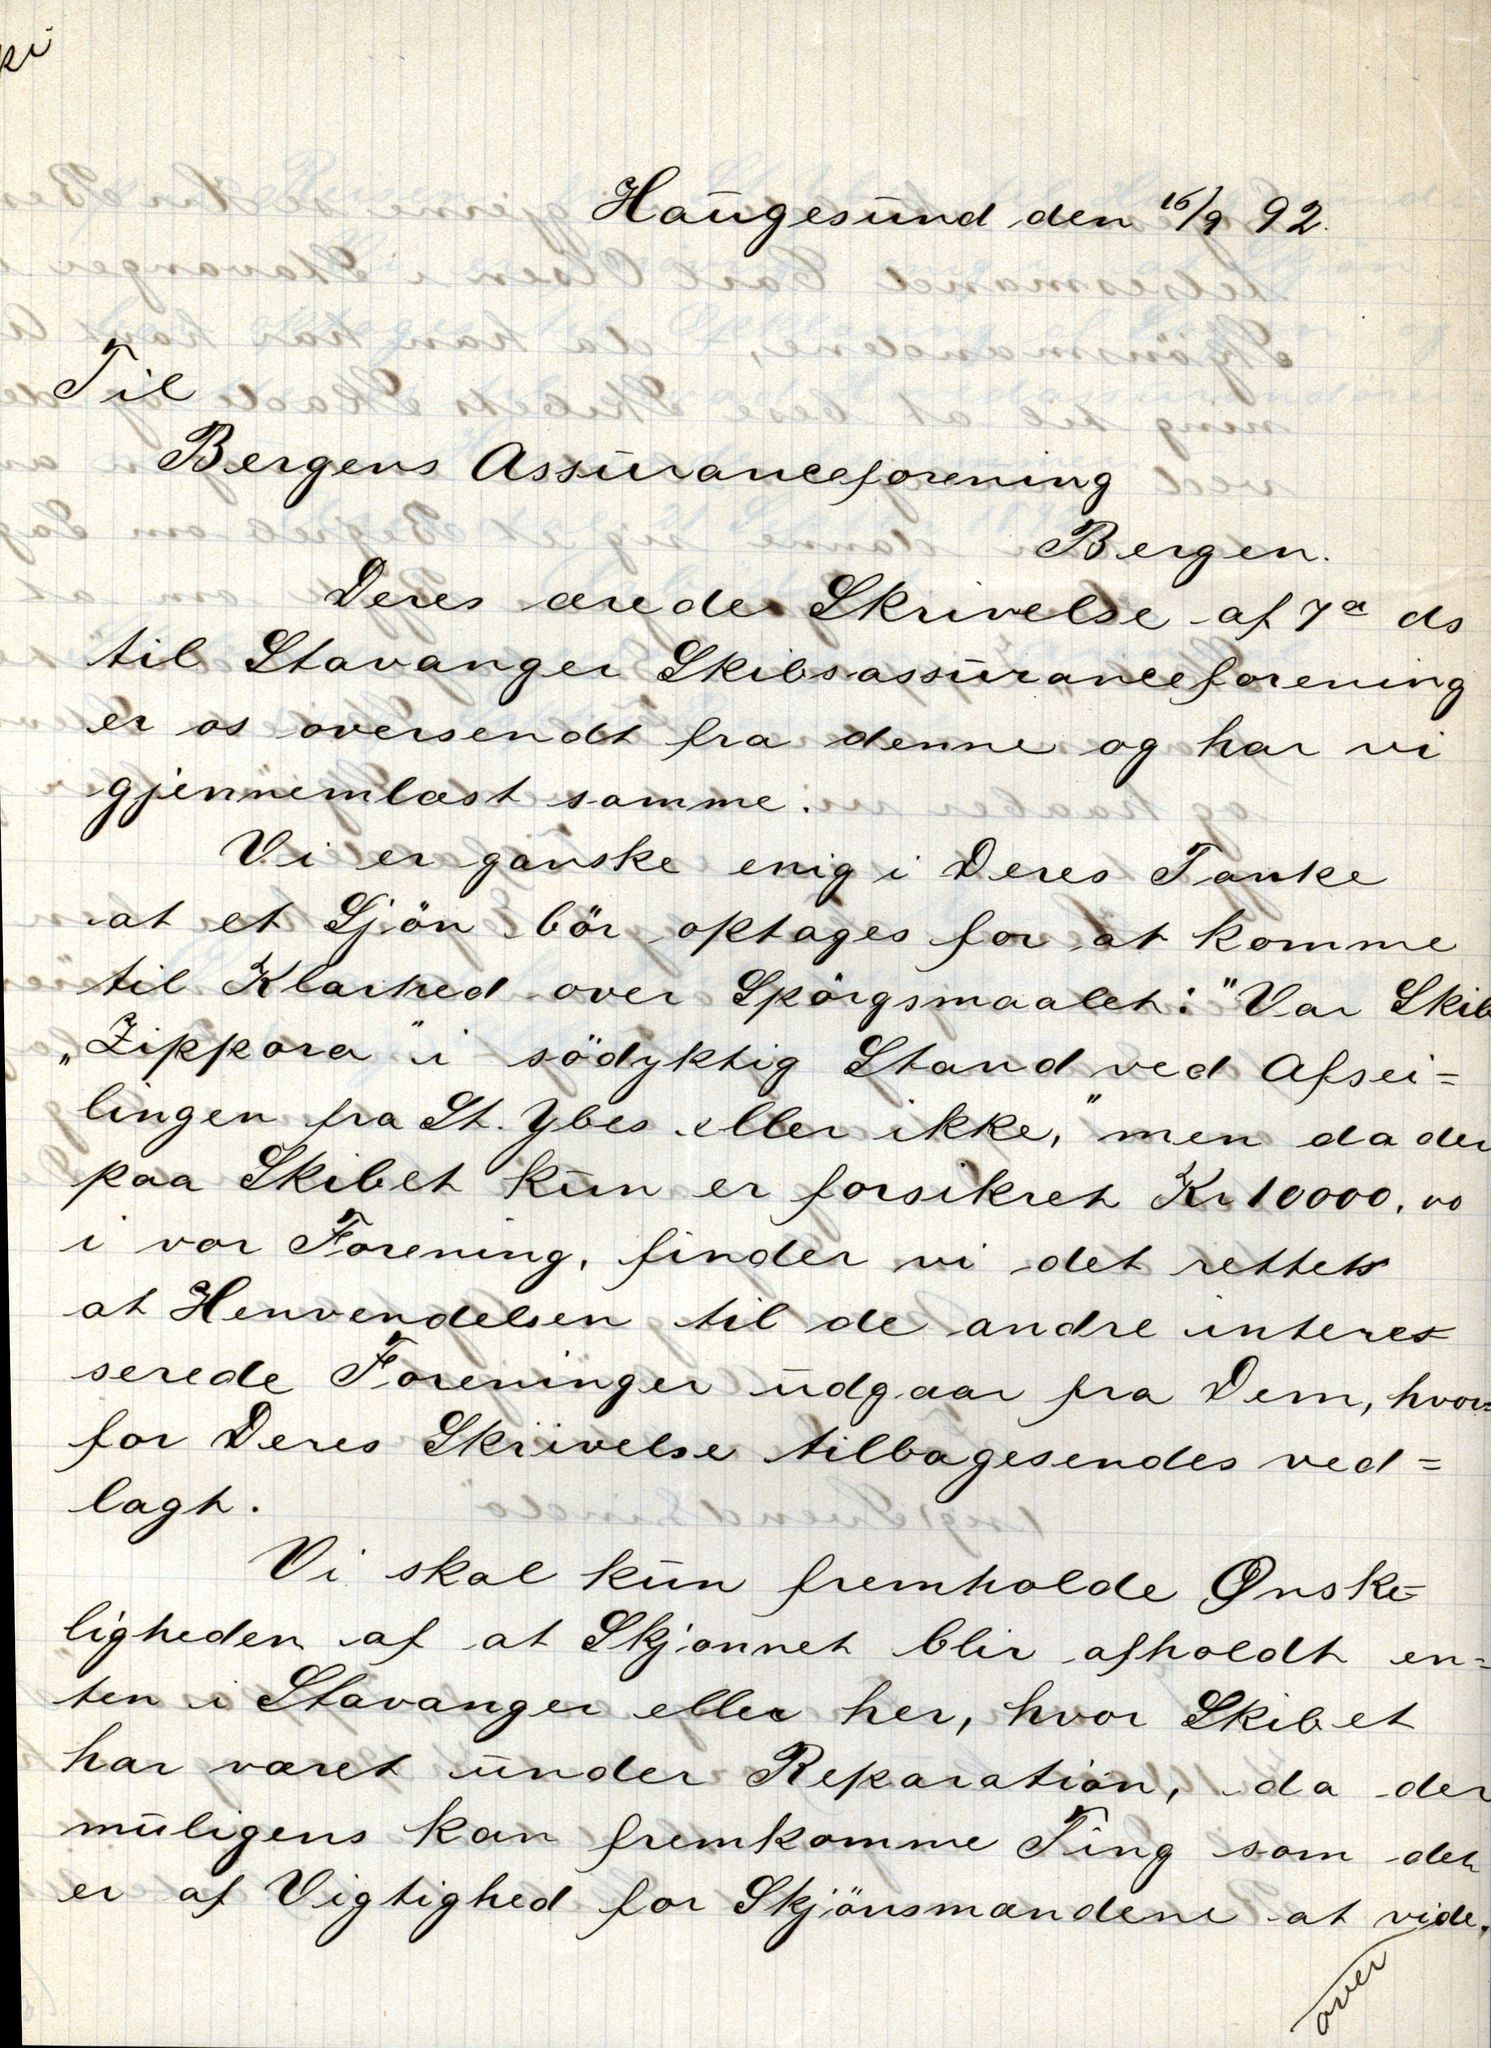 Haugesund den 16/9 92.
Til
Bergens Assuranceforening
Bergen.
Deres ærede Skrivelse af 7de ds
til Stavanger Skibsassuranceforening
er os oversendt fra denne og har vi
gjennemlæst samme.
Vi er ganske enig i Deres Tanke
at et Sjön bör optages for at komme
til Klarhed over Spörgsmaalet: "Var Skib
„Zippora" i södyktig Stand ved Afsei=
lingen fra St. Ybes eller ikke," men da der
paa Skibet kun er forsikret Kr 10000,00
i vor Forening, finder vi det rettest
at Henvendelsen til de andre interes
serede Foreninger udgaar fra Dem, hvor=
for Deres Skrivelse tilbagesendes ved=
lagt.
Vi skal kun fremholde Ønske=
ligheden af at Skjønnet blir afholdt en=
ten i Stavanger eller her, hvor Skibet
har været under Reparation, da der
muligens kan fremkomme Ting som det
er af Vigtighed for Skjönsmændene at vide.
over